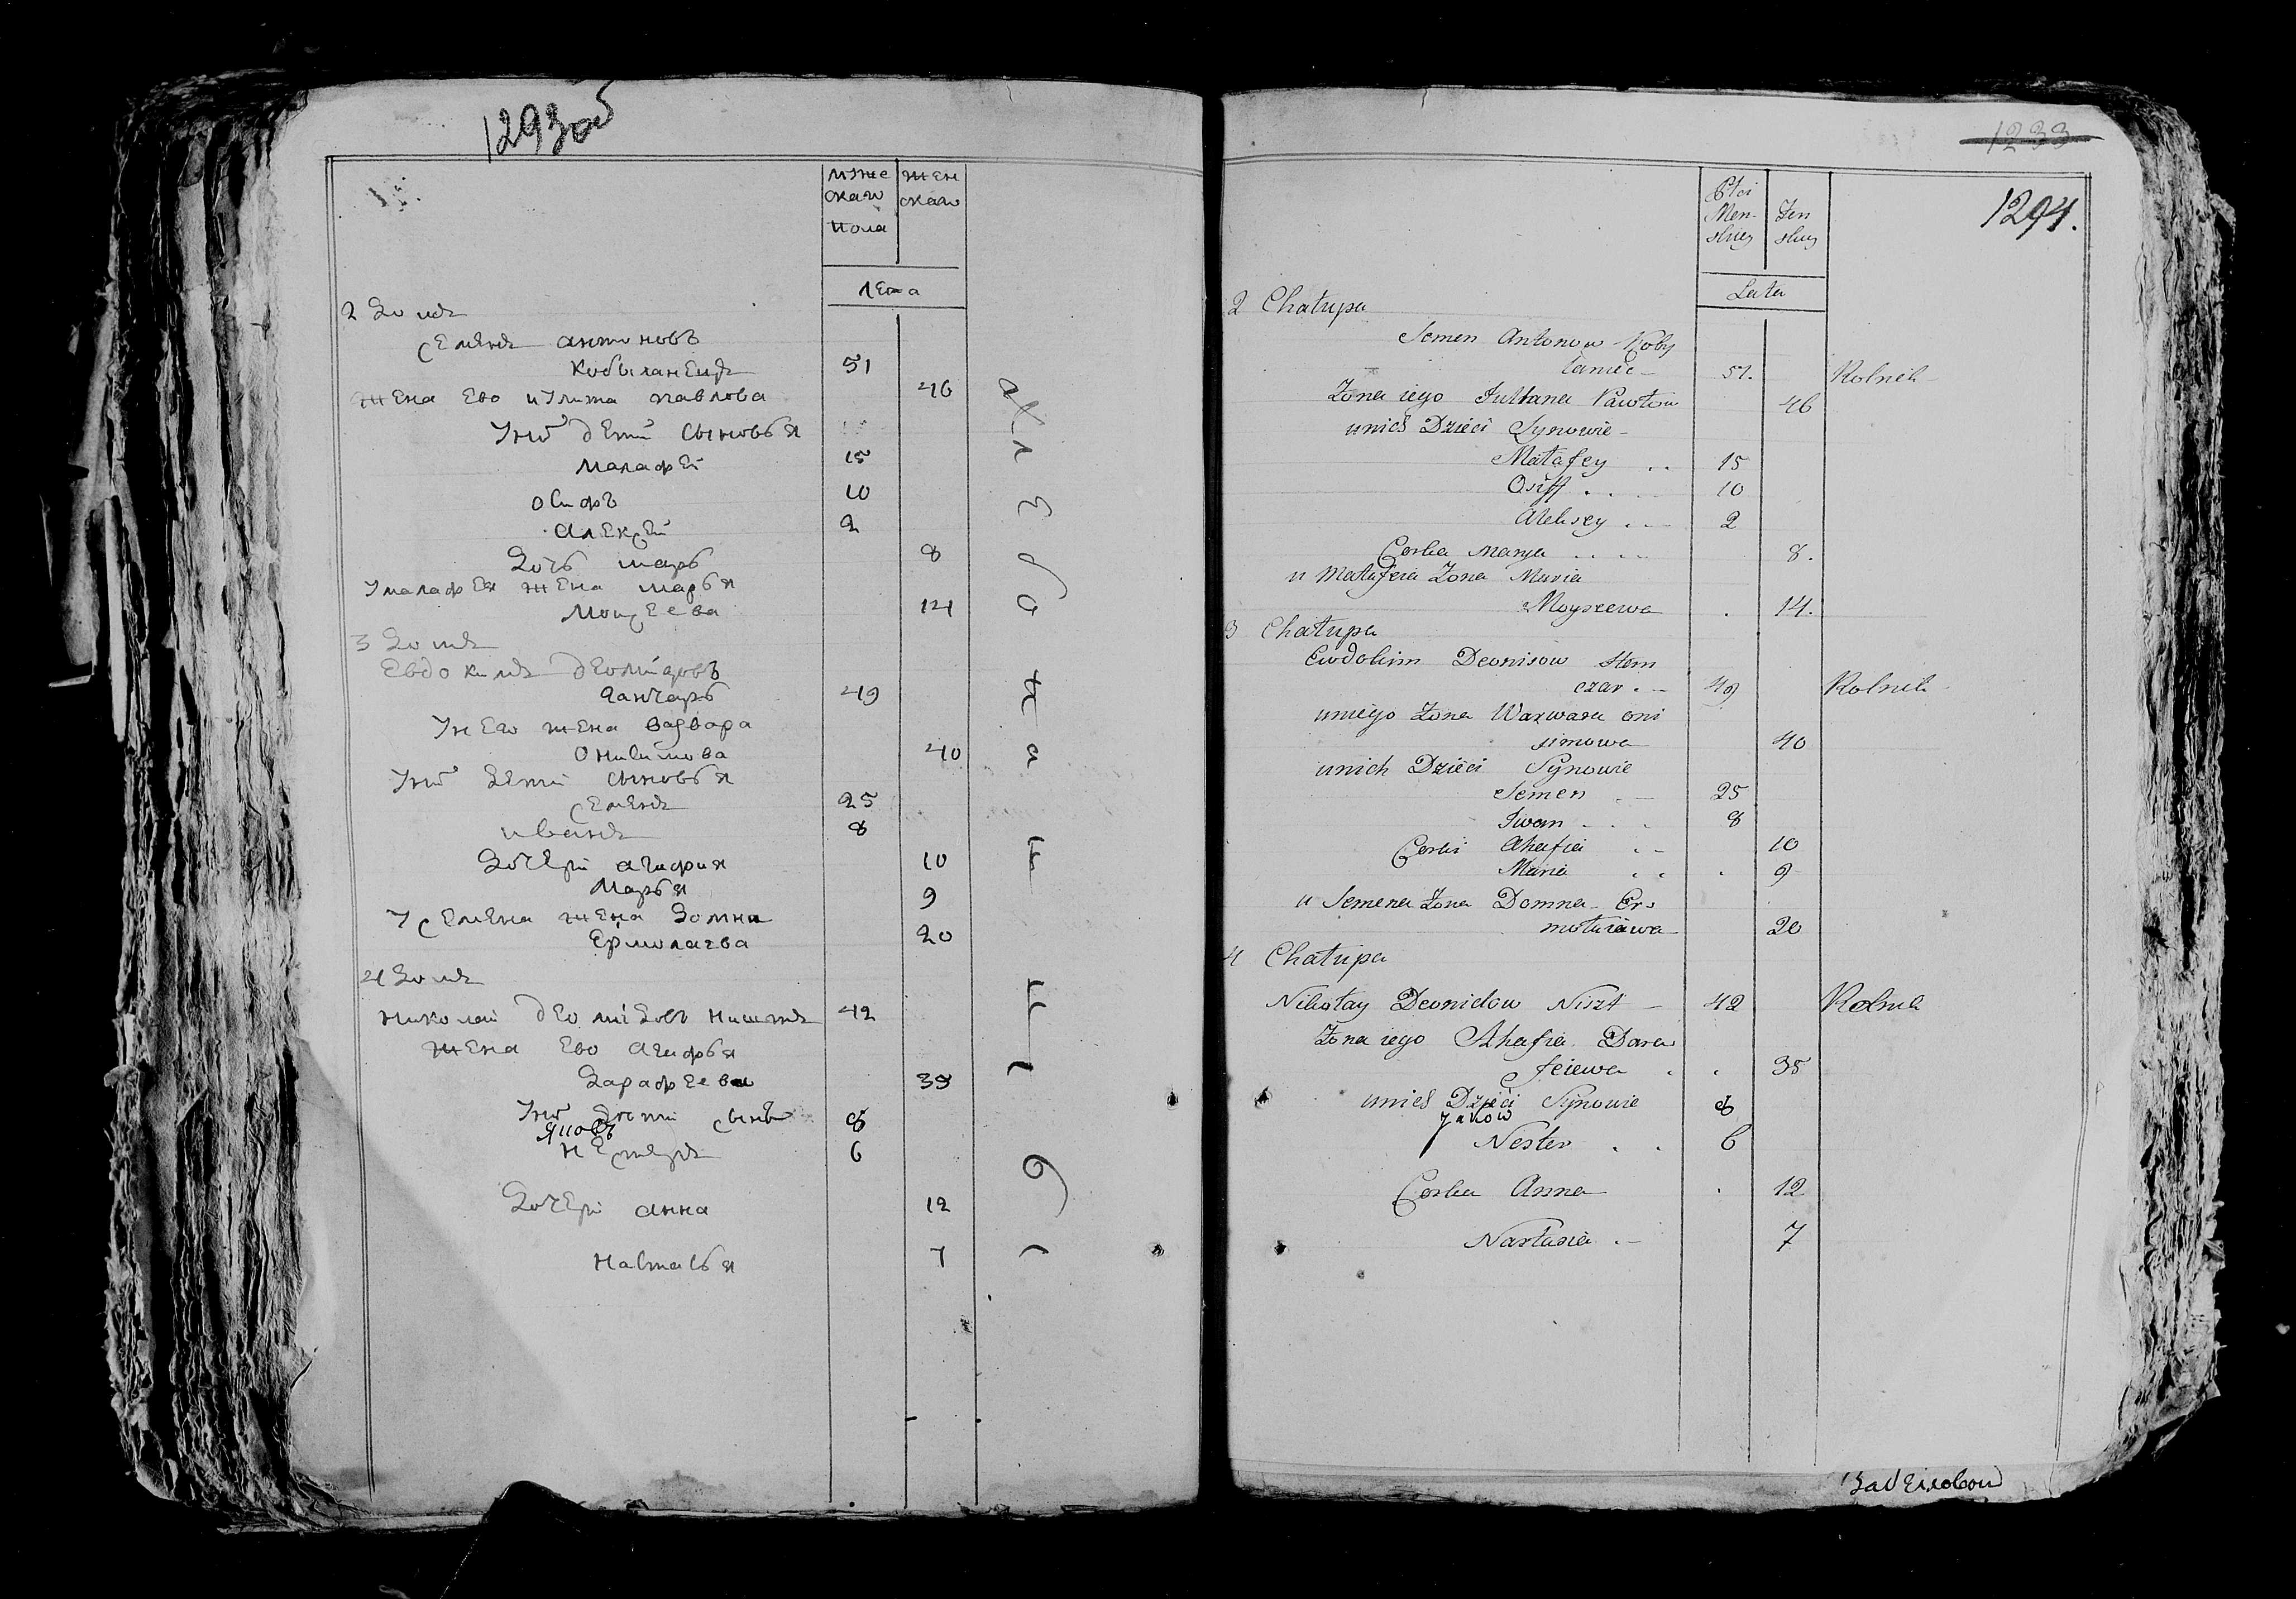 1293об
мȣже женскаго скаго
пола
лета
2 Домъ
Семенъ антоновъ
Кобыланецъ 51
Жена Ево иȣлита павлова 46
ȣнӣ дети сыновья
Малафеи 15
Осифъ 10
алексеи 2
Дочь марь 8
ȣмалафея жена марья
Моисеева 14
3 Домъ
Евдокимъ деонисовъ
ганчаръ 49
ȣ нЕго жена варвара
Онисимова 40
ȣнӣ дети сыновья
семенъ 25
иванъ 8
Дочери агафия 10
Марья 9
ȣ семена жена Домна
Ермолаева 20
4 Домъ
николаи деонидовъ ништъ 42
жена Ево агафья
Дарафеева 35
ȣнӣ дети сынъ
яковъ 8
нестеръ 6
Дочери анна 12
настасья 7
1233
1294.
Płci Menskiey Zenskiey
Lata
2 Chałupa
Semen Antonow Koby
łaniec 51. Rolnik
Zona iego Jultana Pawłow 46
unich Dzieci Synowie
Matafey 15
Osiff 10
Aleksey 2
Corka Marya 8.
u Matafeia Zona Maria
Moyseewa 14.
3 Chałupa
Ewdokim Deonisow Hon
czar 49 Rolnik
uniego Zona Warwara oni
simowa 40
unich Dzieci Synowie
Semen 25
Iwan 8
Corki Ahafia 10
Maria 9
u Semena Zona Domna Er
mołaiewa 20
4 Chałupa
Nikołay Deonidow Niszt 42 Rolnik
Zona iego Ahafia Dara
feiewa 35
unich Dzieci Synowie
Jakow 8
Nester 6
Corka Anna 12
Nastasia 7